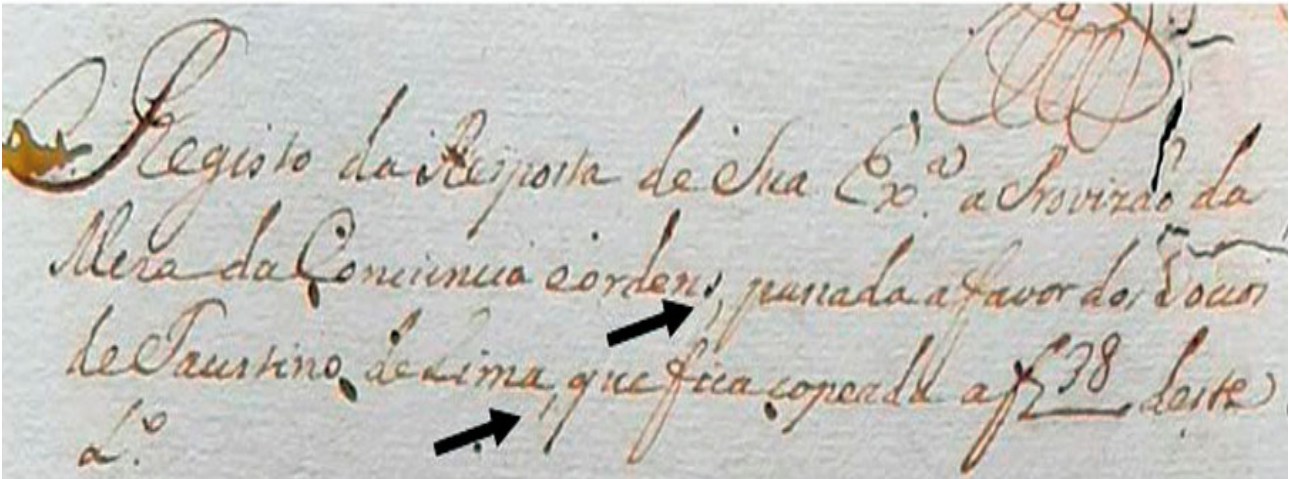 Registo da Resposta de Sua Ex.ª a Provizaõ da
Meza da Conciencia e ordens, passada a favor dos Socios
de Faustino de Lima, que fica copeada a f 38 deste
L.º